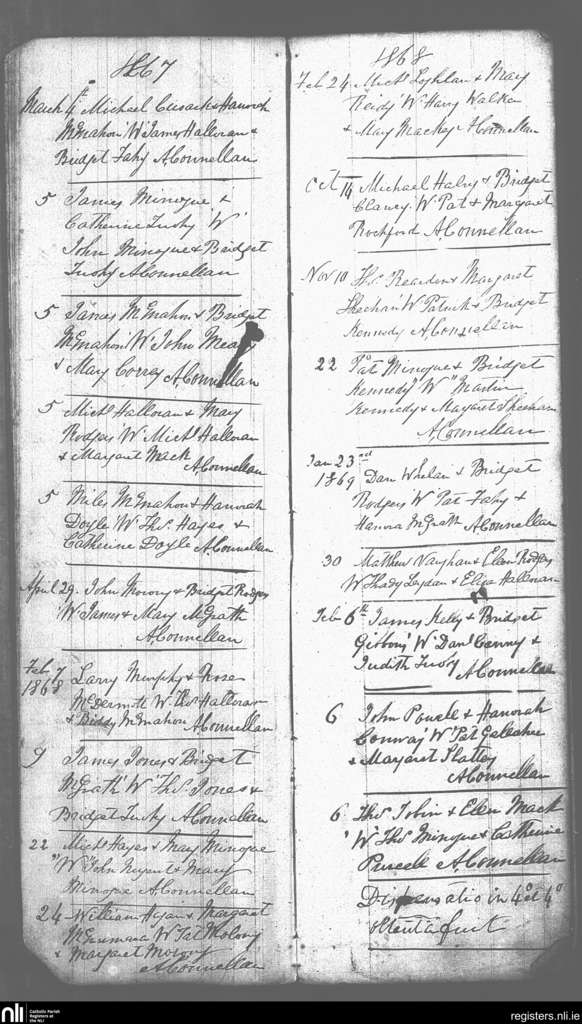 1867
March 4th Michael Cusack & Hanorah
McMahon W James Halloran &
Bridget Fahy A Connellan
5 James Minogue &
Catherine Tuohy W
John Minogue & Bridget
Tuohy A Connellan
5 James McMahon & Bridget
McMahon W John Meany
& Mary Correy A Connellan
5 Michl Halloran & Mary
Rodgers W Michl Halloran
& Margaret Mack A Connellan
5 Miles McMahon & Hanorah
Doyle W Thos Hayes &
Catherine Doyle A Connellan
April 29. John Morony & Bridget Rodgers
W James & Mary McGrath
A Connellan
Feb 7 Larry Murphy & Rose
1868 McDermott W Thos Halloran
& Biddy McMahon A Connellan
9 James Jones & Bridget
McGrath W Thos Jones &
Bridget Tuohy A Connellan
22 Michl Hayes & Mary Minogue
W John Nugent & Mary
Minogue A Connellan
24 William Hogan & Margaret
W Pat Molony
& Margaret Morony
A Connellan
1868
Feb 24 Michl Loghlan & Mary
Reidy W Harry Walker
& Mary Mackey A Connellan
Oct 14 Michael Halry & Bridget
Clancy W Pat & Margaret
Rochford A Connellan
Nov 10 Thos Rearden & Margaret
Sheehan W Patrick & Bridget
Kennedy A Connellan
22 Pat Minogue & Bridget
Kennedy W Martin
Kennedy & Margaret Sheehan
A Connellan
Jan 23rd
1869 Dan Whelan & Bridget
Rodgers W Pat Fahy &
Hanora McGrath A Connellan
30 Matthew Vaughan & Ellen Rodgers
W Thady Leydan & Eliza Halloran
Feb 6th James Kelly & Bridget
Gibbons W Danl Canny &
Judith Tuohy
A Connellan
6 John Powell & Hanorah
Conway W Pat Gallaher
& Margaret Slattery
A Connellan
6 Thos Tobin & Ellen Mack
W Thos Minogue & Catherine
Purcell A Connellan
Dispensatio in 4o et 4o
obtenta fuit
nli
Catholic Parish
Registers at
the NLI
registers.nli.ie